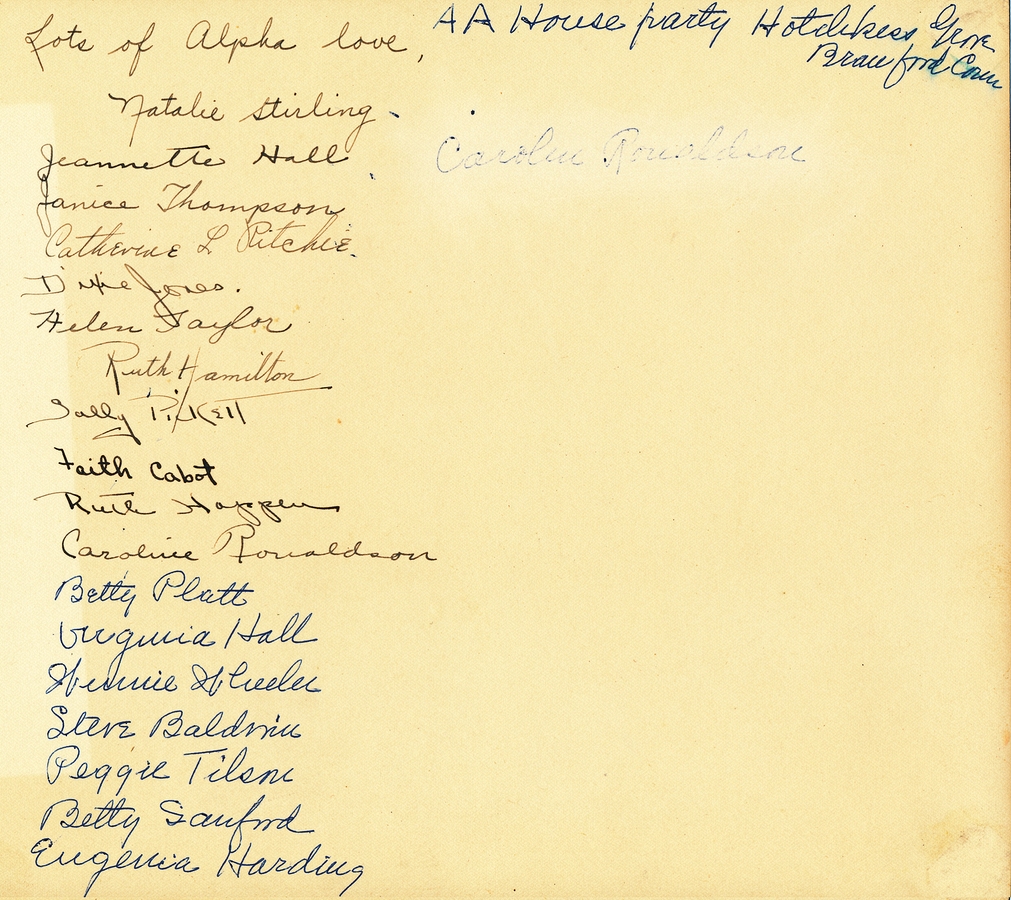 Lots of Alpha love,
AA House party Hotchkiss Grove
Branford Conn
Natalie Stirling
Jeannette Hall
Caroline Ronaldson
Janice Thompson
Catherine L Ritchie.
Dixie Jones.
Helen Taylor
Ruth Hamilton
Sally Pickett
Faith Cabot
Ruth Happen
Caroline Ronaldson
Betty Platt
Virginia Hall
Winnie Wheeler
Steve Baldwin
Peggie Tilson
Betty Sanford
Eugenia Harding